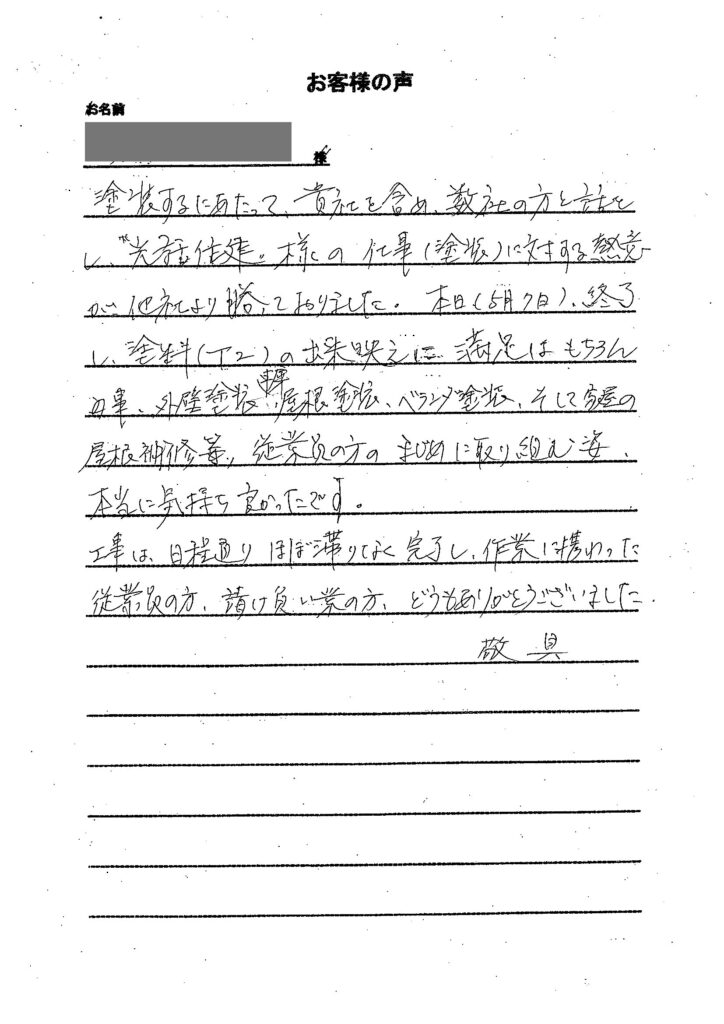 お客様の声
お名前
様
塗装するにあたって、貴社を含め、数社の方と話を
し、〝 住建〟様の 仕事(塗装)に対する熱意
が他社より勝っておりました。本日(5月7日)、終了
し、塗料( )の出来映えに 満足はもちろん
の事、外壁塗装、車庫屋根塗装、ベランダ塗装、そして家屋の
屋根補修等、従業員の方のまじめに取り組む姿、
本当に気持ち良かったです。
工事は、日程通りほぼ滞りなく完了し、作業に携わった
従業員の方、請け負い業の方、どうもありがとうございました。
敬具